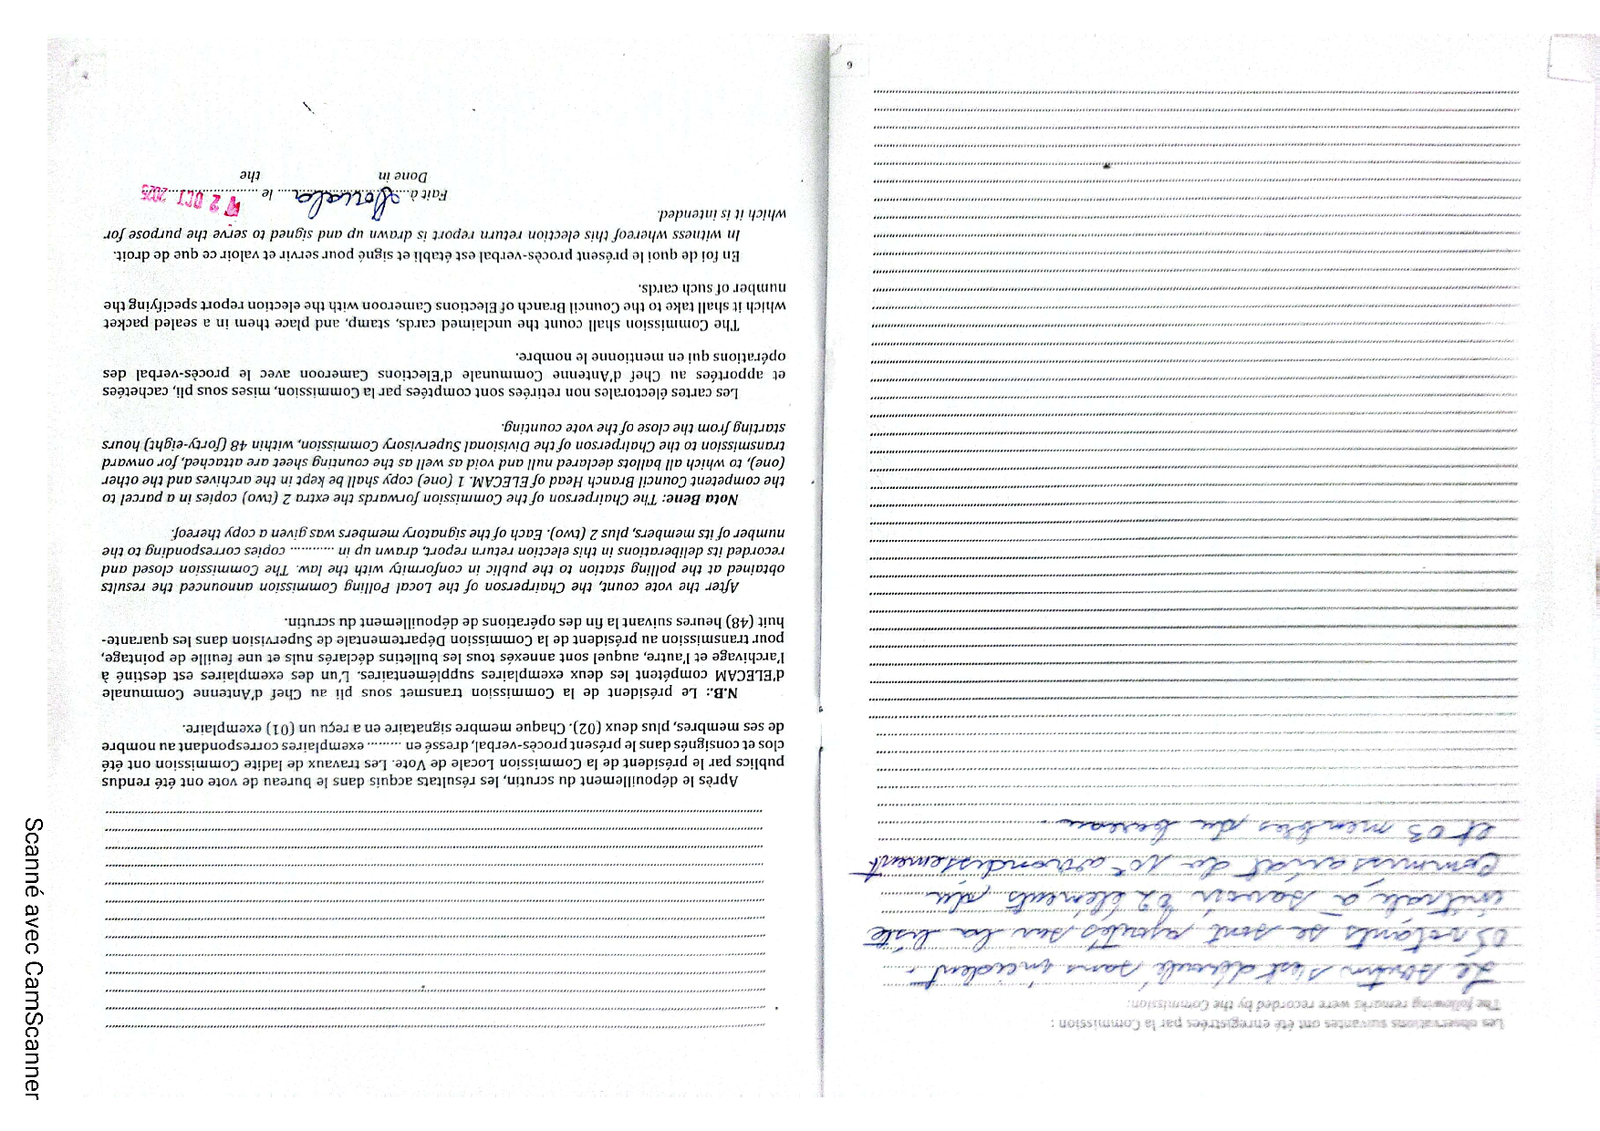 Les observations suivantes ont été enregistrées par la Commission :
The following remarks were recorded by the Commission:
Le scrutin s'est déroulé sans incident.
05 votants se sont ajoutés sur la liste
initiale à savoir 02 éléments du
Commissariat du 10e arrondissement
et 03 membres du bureau
9
Après le dépouillement du scrutin, les résultats acquis dans le bureau de vote ont été rendus
publics par le président de la Commission Locale de Vote. Les travaux de ladite Commission ont été
clos et consignés dans le présent procès-verbal, dressé en ......... exemplaires correspondant au nombre
de ses membres, plus deux (02). Chaque membre signataire en a reçu un (01) exemplaire.
N.B.: Le président de la Commission transmet sous pli au Chef d'Antenne Communale
d'ELECAM compétent les deux exemplaires supplémentaires. L'un des exemplaires est destiné à
l'archivage et l'autre, auquel sont annexés tous les bulletins déclarés nuls et une feuille de pointage,
pour transmission au président de la Commission Départementale de Supervision dans les quarante-
huit (48) heures suivant la fin des opérations de dépouillement du scrutin.
After the vote count, the Chairperson of the Local Polling Commission announced the results
obtained at the polling station to the public in conformity with the law. The Commission closed and
recorded its deliberations in this election return report, drawn up in ............ copies corresponding to the
number of its members, plus 2 (two). Each of the signatory members was given a copy thereof.
Nota Bene: The Chairperson of the Commission forwards the extra 2 (two) copies in a parcel to
the competent Council Branch Head of ELECAM. 1 (one) copy shall be kept in the archives and the other
(one), to which all ballots declared null and void as well as the counting sheet are attached, for onward
transmission to the Chairperson of the Divisional Supervisory Commission, within 48 (forty-eight) hours
starting from the close of the vote counting.
Les cartes électorales non retirées sont comptées par la Commission, mises sous pli, cachetées
et apportées au Chef d'Antenne Communale d'Elections Cameroon avec le procès-verbal des
opérations qui en mentionne le nombre.
The Commission shall count the unclaimed cards, stamp, and place them in a sealed packet
which it shall take to the Council Branch of Elections Cameroon with the election report specifying the
number of such cards.
En foi de quoi le présent procès-verbal est établi et signé pour servir et valoir ce que de droit.
In witness whereof this election return report is drawn up and signed to serve the purpose for
which it is intended.
Fait à Douala le 12 OCT 2025
Done in the
Scanné avec CamScanner